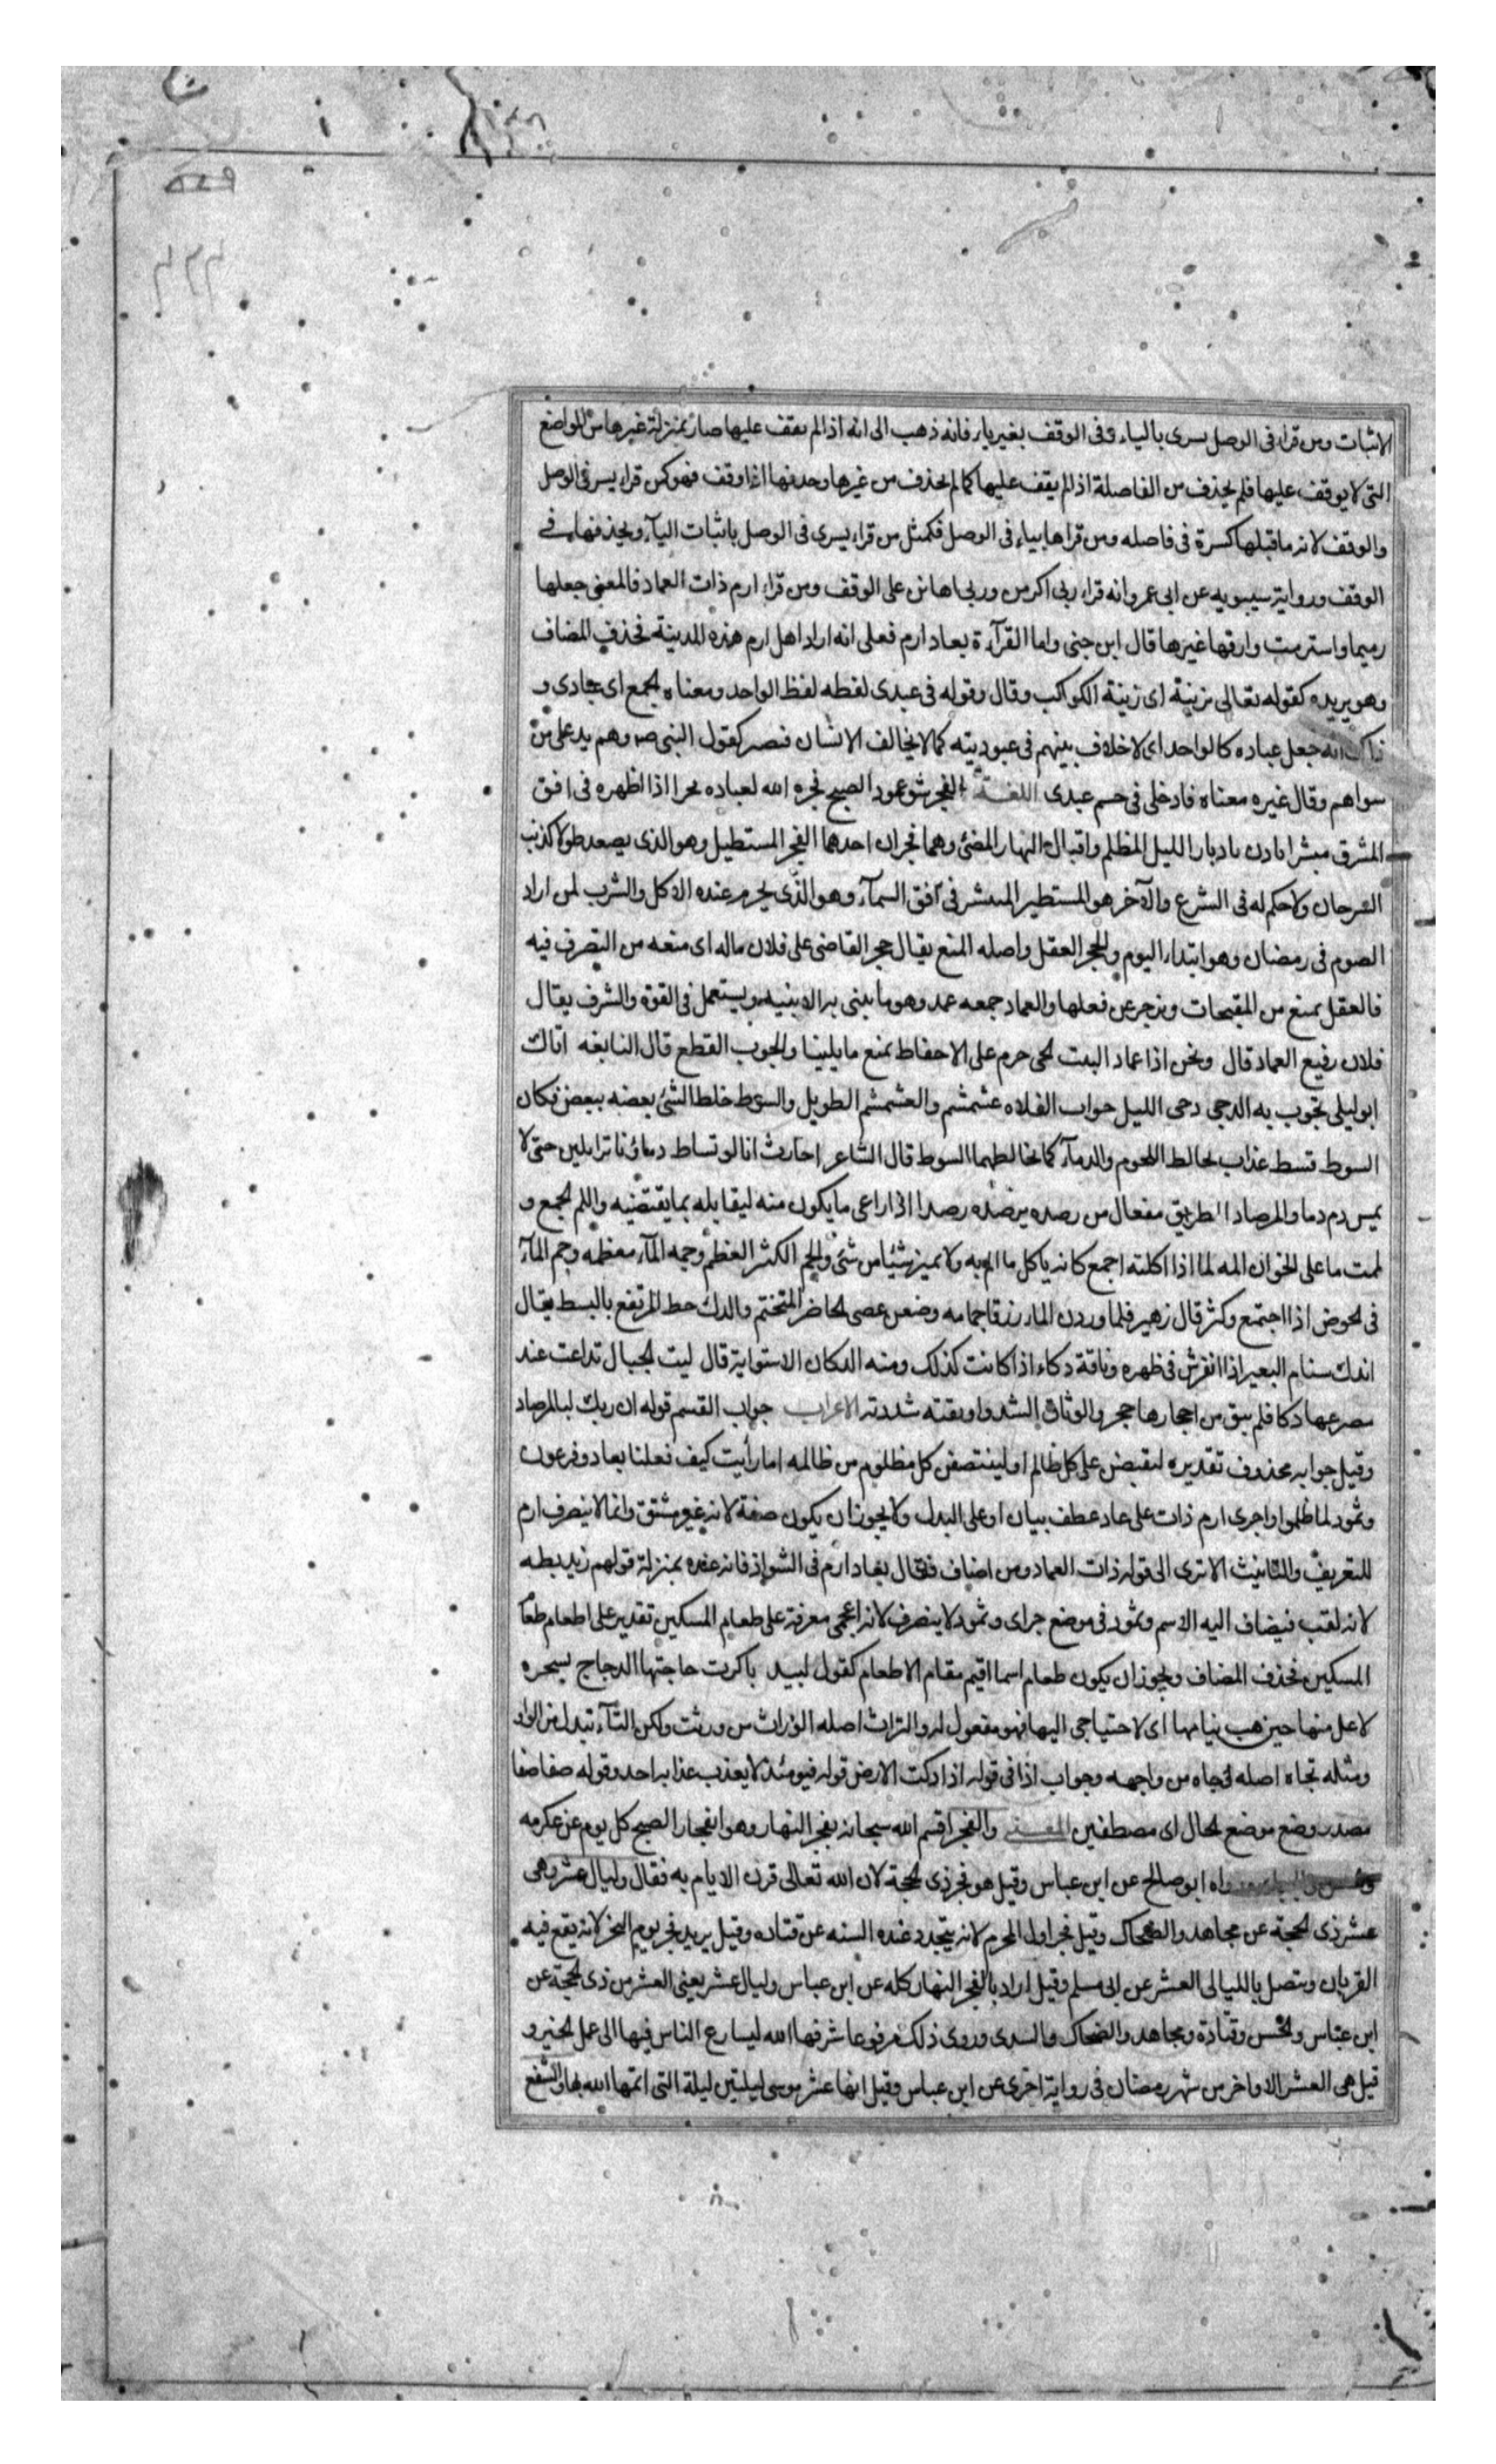 الاثبات ومن قراء فى الوصل يسرى بالياء وفى الوقف بغير ياء فانه ذهب الى انه اذا لم يقف عليها صار بمنزلة غيرها من المواضع
التى لا يوقف عليها فلم يحذف من الفاصلة اذا لم يقف عليها كما لم يحذف من غيرها وحذفها اذا وقف فهو كمن قراء يسر فى الوصل
والوقف لانه ما قبلها كسرة فى فاصله ومن قراها بياء فى الوصل فكمثل من قراء يسرى فى الوصل باثبات اليآء ويحذفها فى
الوقف ورواية سيبويه عن ابى عمرو انه قراء ربى اكرمن وربى اهانن على الوقف ومن قراء ارم ذات العماد فالمعنى جعلها
رميما واسترمت وارقها غيرها قال ابن جنى واما القرآءة بعاد ارم فعلى انه اراد اهل ارم هذه المدينة فحذف المضاف
وهو يريده كقوله تعالى بزينة اى زينة الكواكب وقال وقوله فى عبدى لفظه لفظ الواحد ومعناه الجمع اى عبادى و
ذاك انه جعل عباده كالواحد اى لا خلاف بينهم فى عبوديته كما لا يخالف الانسان فنصر كقول النبى ص وهم يد على من
سواهم وقال غيره معناه فادخلى فى جسم عبدى اللغة الفجر شق عمود الصبح فجره الله لعباده فجرا اذا اظهره فى افق
المشرق مبشرا بادن بادبار الليل المظلم واقبال النهار المضئ وهما فجران احدهما الفجر المستطيل وهو الذى يصعد طولا كذنب
السرحان ولا حكم له فى الشرع والآخر هو المستطير المنتشر فى افق السمآء وهو الذى يحرم عنده الاكل والشرب لمن اراد
الصوم فى رمضان وهو ابتداء اليوم والحجر العقل واصله المنع يقال حجر القاضى على فلان ماله اى منعه من التصرف فيه
فالعقل يمنع من المقبحات ويزجر عن فعلها والعماد جمعه عمد وهو ما يبنى به الابنيه ويستعمل فى القوة والشرف يقال
فلان رفيع العماد قال ونحن اذا عماد البيت لحى حرم على الاحفاط نمنع ما يلينا والجوب القطع قال النابغه اتاك
ابو ليلى تجوب به الدجى دحى الليل جواب الفلاه عشمشم والعشمشم الطويل والسوط خلط الشئ بعضه ببعض فكان
السوط قسط عذاب يخالط اللحوم والدمآء كما يخالطهما السوط قال الشاعر احارث انا لو تساط دماؤنا تزايلن حتى لا
يمس دم دما والمرصاد الطريق مفعال من رصده يرصده رصدا اذا راعى ما يكون منه ليقابله بما يقتضيه واللم الجمع و
لممت ما على الخوان المه لما اذا اكلته اجمع كانه ياكل ما الم به ولا يميز شيئا من شئ والجم الكثر العظم وجمه المآء معظمه وجم المآء
فى الحوض اذا اجتمع وكثر قال زهير فلما وردن الماء زرقا جمامه وضعن عصى الحاضر المتخيم والدك حط المرتفع بالبسط يقال
اندك سنام البعير اذا انفرش فى ظهره وناقة دكاء اذا كانت كذلك ومنه الدكان الاستوايه قال ليت الجبال تداعت عند
مصرعها دكا فلم يبق من احجارها حجر والوثاق الشد واوثقته شددته الاعراب جواب القسم قوله ان ربك لبالمرصاد
وقيل جوابه محذوف تقديره لنقبضن على كل ظالم او لينتصفن كل مظلوم من ظالمه اما رأيت كيف فعلنا بعاد وفرعون
وثمود لما ظلموا واجرى ارم ذات على عاد عطف بيان او على البدل ولا يجوز ان يكون صفة لانه غير مشتق وانما لا ينصرف ارم
للتعريف والتانيث الا ترى الى قوله ذات العماد ومن اضاف فقال بعاد ارم فى الشواذ فانه عنده بمنزلة قولهم زيد بطه
لانه لقب فيضاف اليه الاسم وثمود فى موضع جر اى وثمود لا ينصرف لانه اعجمى معرفة على طعام المسكين تقدير على اطعام طعام
المسكين فحذف المضاف ويجوز ان يكون طعام اسما اقيم مقام الاطعام كقول لبيد باكرت حاجتها الدجاج بسحره
لاعل منها حين هب نيامها اى لاحتياجى اليها فهو مفعول له والتراث اصله الوراث من ورثت ولكن التآء تبدل من الواو
ومثله تجاه اصله وجاه من واجهه وجواب اذا فى قوله اذا دكت الارض قوله فيومئذ لا يعذب عذابه احد وقوله صفا صفا
مصدر وضع موضع الحال اى مصطفين المعنى والفجر اقسم الله سبحانه بفجر النهار وهو انفجار الصبح كل يوم عن عكرمه
رواه ابو صالح عن ابن عباس وقيل هو فجر ذى الحجة لان الله تعالى قرن الايام به فقال وليال عشر وهى
عشر ذى الحجة عن مجاهد والضحاك وقيل فجر اول المحرم لانه يتجدد عنده السنه عن قتاده وقيل يريد فجر يوم النحر لانه يقع فيه
القربان ويتصل بالليالى العشر عن ابى مسلم وقيل اراد بالفجر النهار كله عن ابن عباس وليال عشر يعنى العشر من ذى الحجة عن
ابن عباس والحسن وقتادة ومجاهد والضحاك والسدى وروى ذلك مرفوعا شرفها الله ليسارع الناس فيها الى عمل الخير و
قيل هى العشر الاواخر من شهر رمضان فى رواية اخرى عن ابن عباس وقيل انها عشر موسى لليلتين ليلة التى اتمها الله بها والشفع